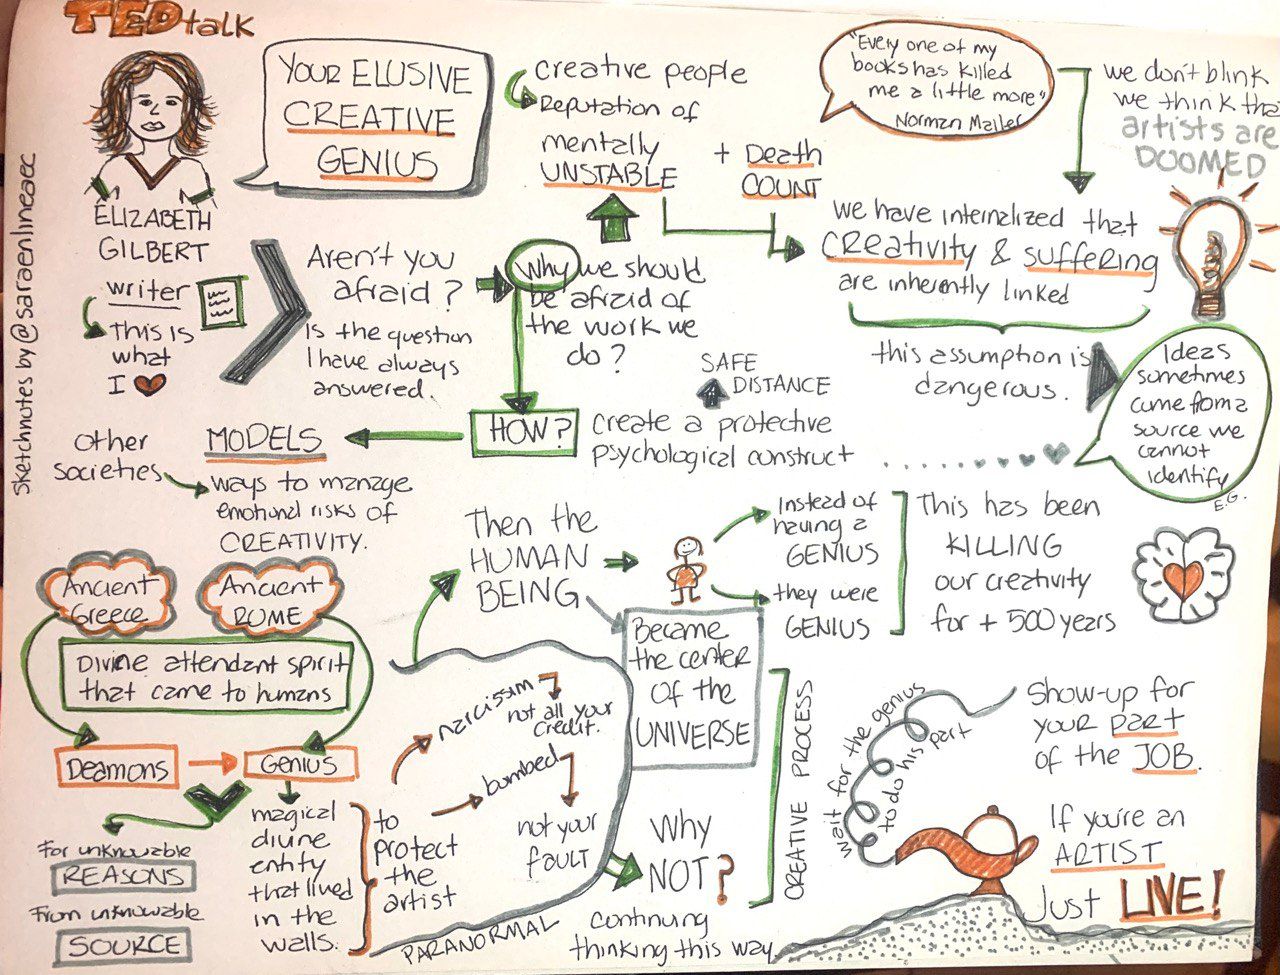 TED talk
YOUR ELUSIVE
CREATIVE
GENIUS
ELIZABETH
GILBERT
writer
This is
what
I
sketchnotes by @saraenlineaec
Creative people
Reputation of
mentally
UNSTABLE
+ Death
COUNT
"Every one of my
books has killed
me a little more"
Norman Mailer
we don't blink
we think tha
artists are
DOOMED
we have internalized that
CREATIVITY & SUFFERING
are inherently linked
this assumption is
dangerous.
Ideas
sometimes
come from a
source we
cannot
identify
E.G.
Aren't you
afraid?
Is the question
I have always
answered.
Why we should
be afraid of
the work we
do?
HOW?
SAFE
DISTANCE
create a protective
psychological construct
MODELS
Other
societies
ways to manage
emotional risks of
CREATIVITY.
Ancient
Greece
Ancient
ROME
Divine attendant spirit
that came to humans
Deamons
Genius
For unknowable
REASONS
From unknowable
SOURCE
magical
divine
entity
that lived
in the
walls.
to
protect
the
artist
narcissim
not all your
credit.
bombed
not your
fault
PARANORMAL
Then the
HUMAN
BEING
Became
the center
of the
UNIVERSE
Instead of
having a
GENIUS
they were
GENIUS
This has been
KILLING
our creativity
for + 500 years
Why
NOT?
continuing
thinking this way
CREATIVE PROCESS
wait for the genius
to do his part
Show-up for
your part
of the JOB.
If you're an
ARTIST
Just LIVE!